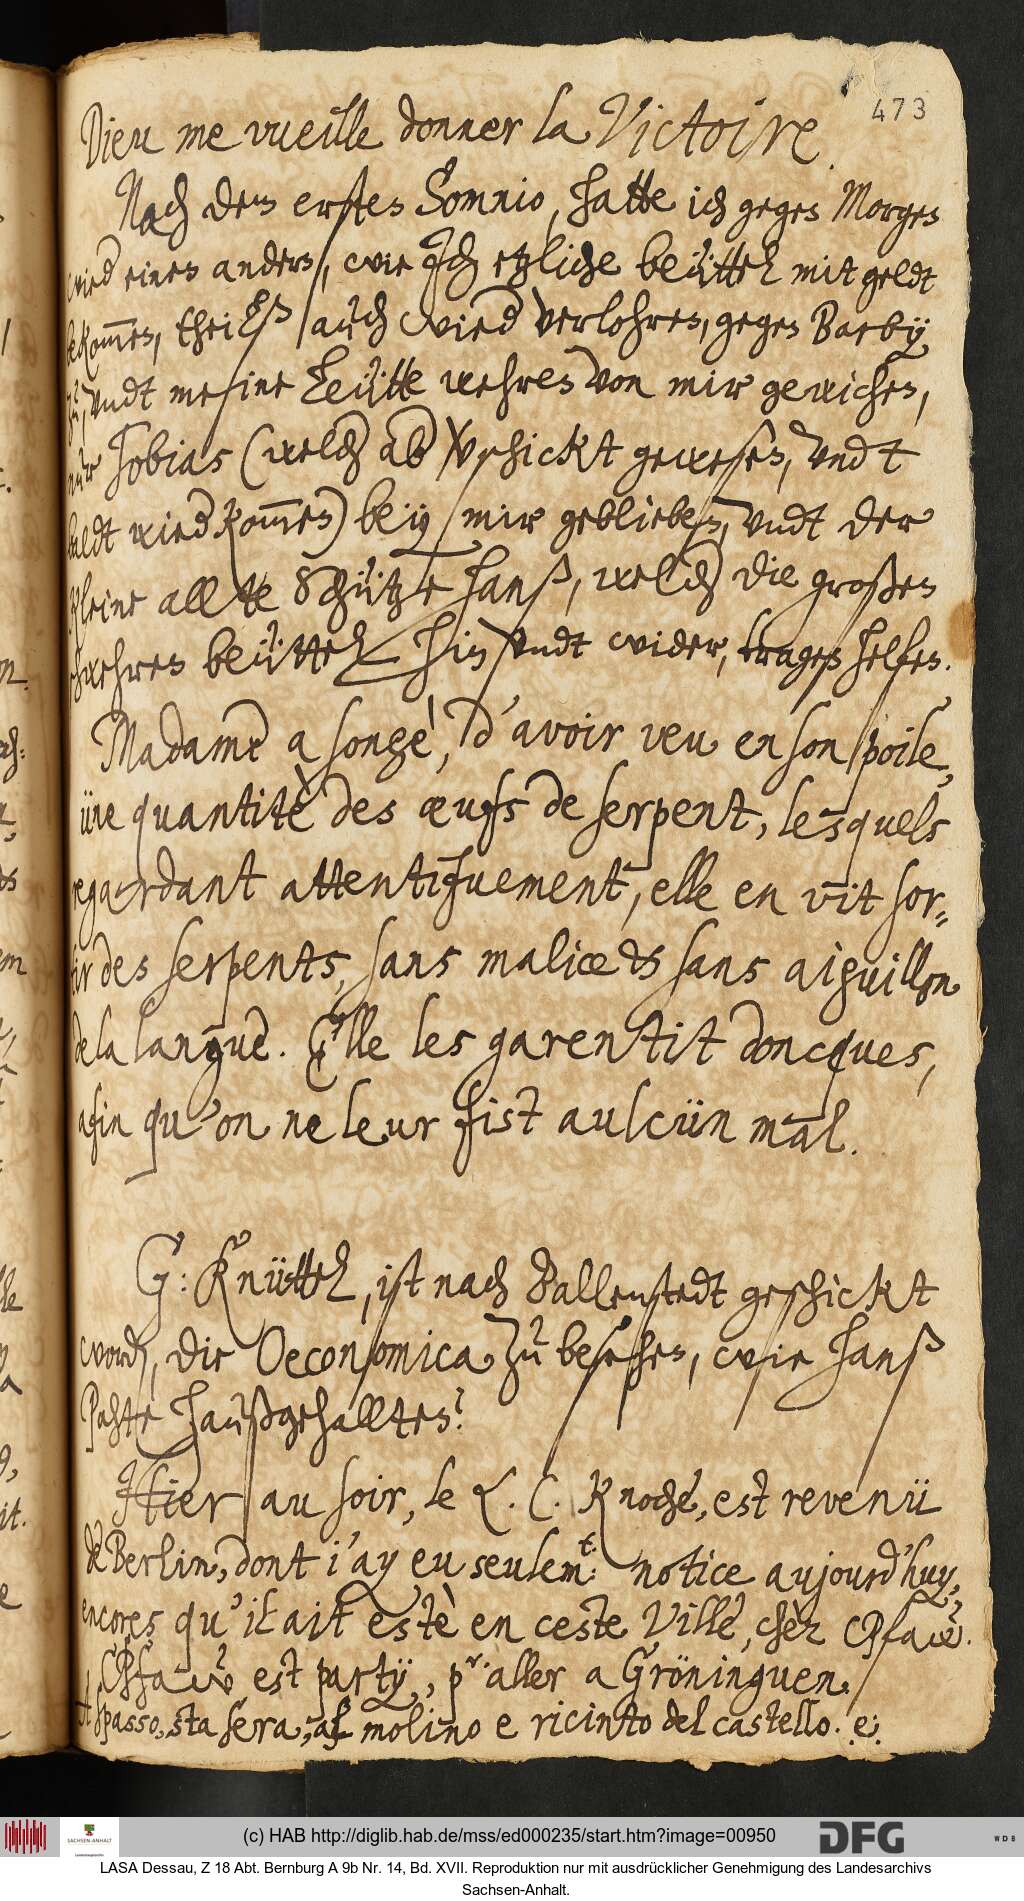 473
Dieu me vueille donner la Victoire.
Nach dem ersten Somnio, hatte ich gegen Morgen
wied einen andern, wie Ich etzliche beüttel mit geldt
bekom̅en, theilß auch wied verlohren, gegen Barby
zu, vndt meine Leütte wehren von mir gewichen,
nur Tobias (welch ab vschickt gewesen, vndt
baldt wied kom̅en) bey mir geblieben, vndt der
kleine allte Schütze Hanß, welch die großen
schwehren beüttel hin vndt wider, tragen helfen.
Madame a songè, d'avoir veu en son poile,
üne quantitè des œufs de serpent, lesquels
regardant attentifuement, elle en vit sor-
tir des serpents, sans malice & sans aiguillon
de la langue. Elle les garentit doncques,
afin qu'on ne leur fist aulcün mal.
G: Knüttel, ist nach Ballenstedt geschickt
word, die Oeconomica zu besehen, wie Hanß
Pahte haußgehallten?
Hier au soir, le L. C. Knoche, est revenü
de Berlin, dont j'ay eu seulem:t notice aujourd'huy,
encores qu'il ait estè en ceste Ville, chèz CPfaw.
CPfaw est party, pr. aller a Gröninguen.
At spasso, sta sera, al molino e ricinto del castello. e:
(c) HAB http://diglib.hab.de/mss/ed000235/start.htm?image=00950
SACHSEN-ANHALT
DFG
WDB
LASA Dessau, Z 18 Abt. Bernburg A 9b Nr. 14, Bd. XVII. Reproduktion nur mit ausdrücklicher Genehmigung des Landesarchivs
Sachsen-Anhalt.